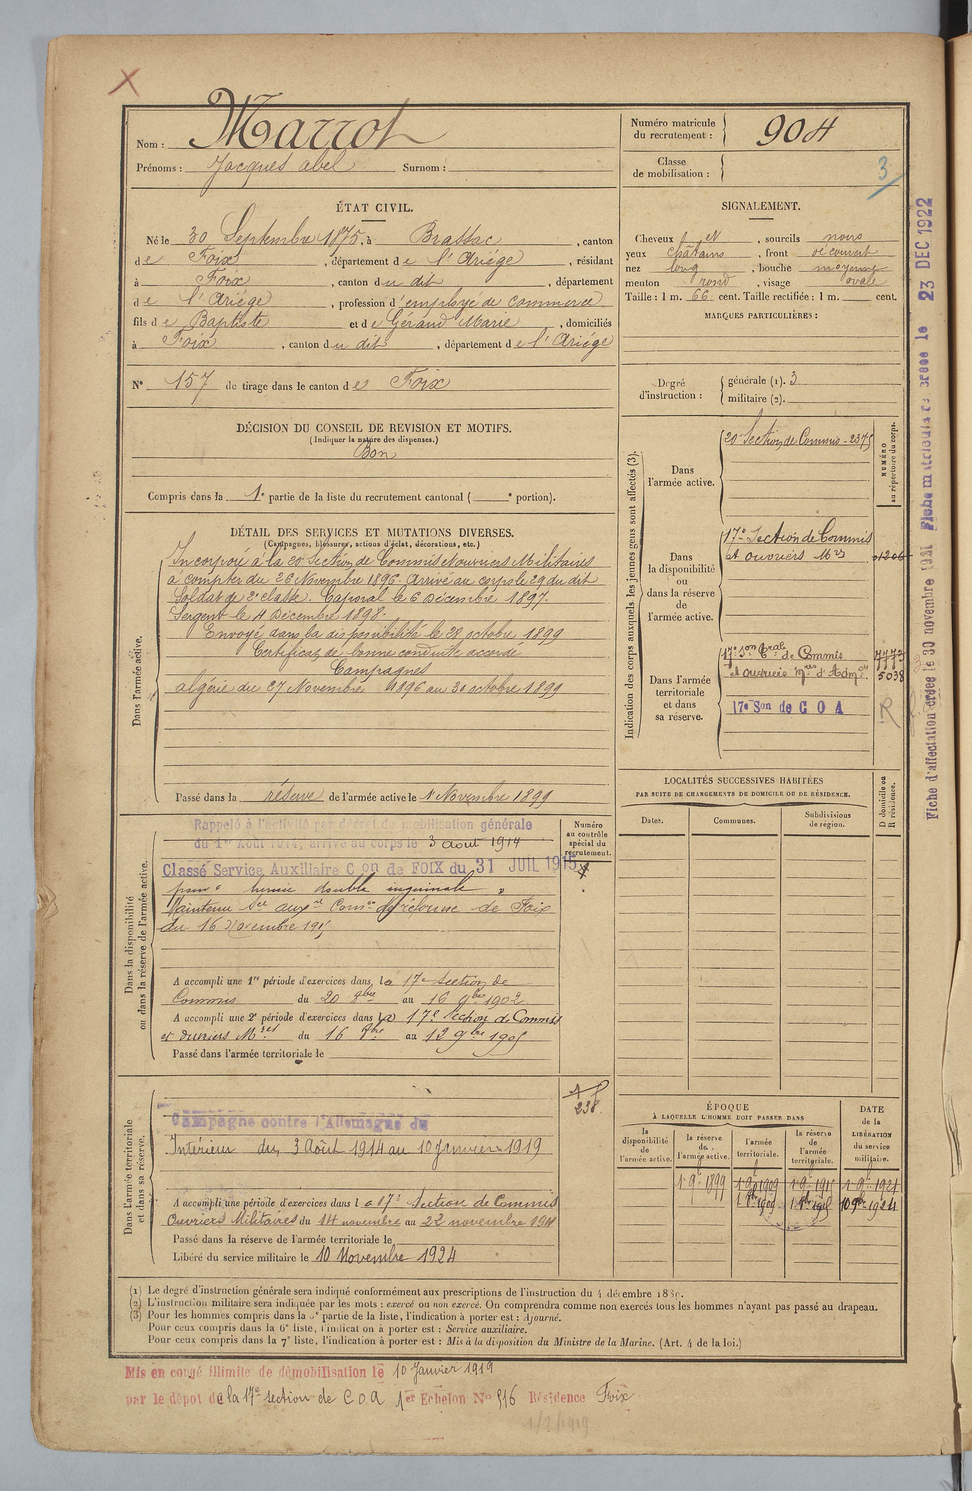 Nom : Marrot
Prénoms : Jacques abel Surnom :
Numéro matricule du recrutement : 904
Classe de mobilisation :
3
ÉTAT CIVIL.
Né le 30 Septembre 1875, à Brassac, canton
de Foix, département de l'Ariège, résidant
à Foix, canton du dit, département
de l'Ariège, profession d'employé de commerce
fils de Baptiste et de Gérand Marie, domiciliés
à Foix, canton du dit, département de l'Ariège
N° 157 de tirage dans le canton de Foix
SIGNALEMENT.
Cheveux et, sourcils noirs
yeux châtains, front découvert
nez long, bouche moyenne
menton rond, visage ovale
Taille : 1 m. 66 cent. Taille rectifiée : 1 m. cent.
MARQUES PARTICULIÈRES :
Degré d'instruction :
générale (1). 3
militaire (2).
DÉCISION DU CONSEIL DE REVISION ET MOTIFS.
(Indiquer la nature des dispenses.)
Bon
Compris dans la 1e partie de la liste du recrutement cantonal ( e portion).
DÉTAIL DES SERVICES ET MUTATIONS DIVERSES.
(Campagnes, blessures, actions d'éclat, décorations, etc.)
Dans l'armée active.
Incorporé à la 20e Section de Commis et ouvriers Militaires
à compter du 26 Novembre 1896. Arrivé au corps le 29 du dit
Soldat de 2e classe. Caporal le 6 Décembre 1897.
Sergent le 4 Décembre 1898.
Envoyé dans la disponibilité le 28 octobre 1899
Certificat de bonne conduite accordé
Campagnes
Algérie du 27 Novembre 1896 au 30 octobre 1899
Passé dans la réserve de l'armée active le 1 Novembre 1899
Indication des corps auxquels les jeunes gens sont affectés (3).
NUMÉRO au répertoire du corps.
Dans l'armée active.
20e Section de Commis - 2375
Dans la disponibilité ou dans la réserve de l'armée active.
17e Section de Commis
et ouvriers Mres 01206
Dans l'armée territoriale et dans sa réserve.
17e Son Trale de Commis 7773
et ouvriers Mres d'Admon 5038
17e Son de C O A
R
LOCALITÉS SUCCESSIVES HABITÉES
PAR SUITE DE CHANGEMENTS DE DOMICILE OU DE RÉSIDENCE.
Dates.
Communes.
Subdivisions de région.
D domicile ou R résidence.
Dans la disponibilité ou dans la réserve de l'armée active.
Numéro au contrôle spécial du recrutement.
Rappelé à l'activité par décret de mobilisation générale
du 1er Août 1914, arrivé au corps le 3 août 1914
Classé Service Auxiliaire C on de FOIX du 31 JUIL 1915
pour " hernie double inguinale "
Maintenu Sce auxre Comon de réforme de Foix
du 16 Novembre 1915
A accompli une 1re période d'exercices dans la 17e Section de
Commis du 20 8bre au 16 9bre 1902
A accompli une 2e période d'exercices dans la 17e Section de Commis
et ouvriers Mres du 16 8bre au 12 9bre 1905
Passé dans l'armée territoriale le
Dans l'armée territoriale et dans sa réserve.
238
Campagne contre l'Allemagne du
Intérieur du 3 Août 1914 au 10 Janvier 1919
A accompli une période d'exercices dans la 17e Section de Commis
Ouvriers Militaires du 14 novembre au 22 novembre 1911
Passé dans la réserve de l'armée territoriale le
Libéré du service militaire le 10 Novembre 1924
ÉPOQUE
À LAQUELLE L'HOMME DOIT PASSER DANS
la disponibilité de l'armée active.
la réserve de l'armée active.
l'armée territoriale.
la réserve de l'armée territoriale.
DATE de la LIBÉRATION du service militaire.
1 9e 1899 1 9e 1909 1 9e 1915 1 9e 1921
1 9bre 1909 1 9bre 1918 10 9bre 1924
(1) Le degré d'instruction générale sera indiqué conformément aux prescriptions de l'instruction du 4 décembre 1889.
(2) L'instruction militaire sera indiquée par les mots : exercé ou non exercé. On comprendra comme non exercés tous les hommes n'ayant pas passé au drapeau.
(3) Pour les hommes compris dans la 5e partie de la liste, l'indication à porter est : Ajourné.
Pour ceux compris dans la 6e liste, l'indication à porter est : Service auxiliaire.
Pour ceux compris dans la 7e liste, l'indication à porter est : Mis à la disposition du Ministre de la Marine. (Art. 4 de la loi.)
Mis en congé illimité de démobilisation le 10 Janvier 1919
par le dépôt de la 17e section de C O A 1er Echelon N° 516 Résidence Foix
1/2/1919
Fiche d'affectation créée le 30 novembre 1921 Fiche matriculaire créée le 23 DEC 1922